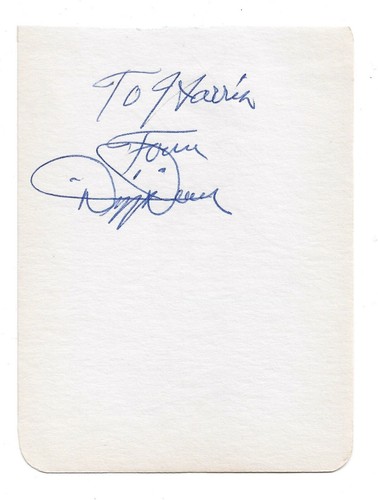 To Harris
From
"Dizzy" Dean